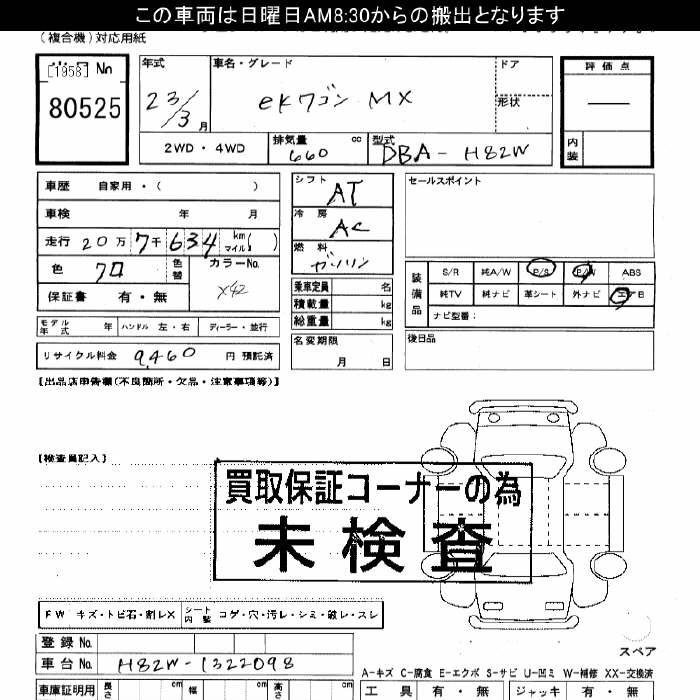 この車両は日曜日AM8:30からの搬出となります
(複合機)対応用紙
[1958] No
80525
年式
23/3 月
車名・グレード
eKワゴン MX
ドア
形状
評価点
―
内装
2WD・4WD
排気量 cc
660
型式
DBA-H82W
車歴 自家用・( )
車検 年 月
走行 20万7千634 km マイル( )
色 クロ
色替
カラーNo.
X42
保証書 有・無
モデル年式 年 ハンドル 左・右 ディーラー・並行
リサイクル料金 9,460 円 預託済
シフト
AT
冷房
AC
燃料
ガソリン
乗車定員 名
積載量 kg
総重量 kg
名変期限
月 日
セールスポイント
装備品
S/R 純A/W P/S P/W ABS
純TV 純ナビ 革シート 外ナビ エアB
ナビ型番:
後日品
【出品店申告欄(不良箇所・欠品・注意事項等)】
【検査員記入】
買取保証コーナーの為
未検査
FW キズ・トビ石・割レX
シート内装 コゲ・穴・汚レ・シミ・破レ・スレ
登録No.
車台No. H82W-1322098
車庫証明用 長さ cm 幅 cm 高さ cm
スペア
A-キズ C-腐食 E-エクボ S-サビ U-凹ミ W-補修 XX-交換済
工具 有・無 ジャッキ 有・無